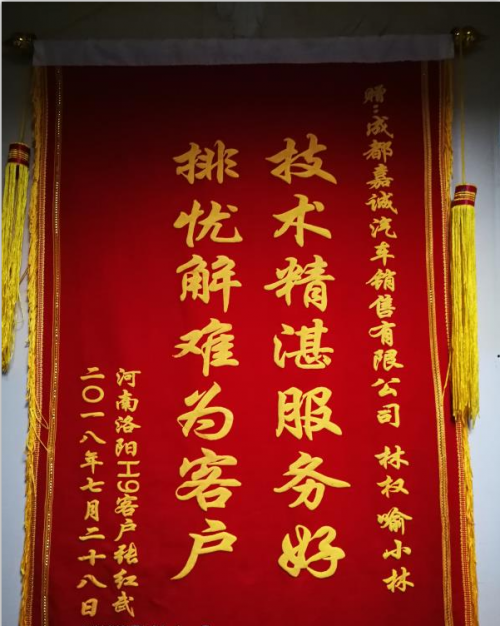 赠:成都嘉诚汽车销售有限公司 林权 喻小林
技术精湛服务好
排忧解难为客户
河南洛阳H9客户张红武
二〇一八年七月二十八日